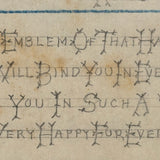 Emblem Of That
Will Bind You In
You In Such A
Very Happy For Ever